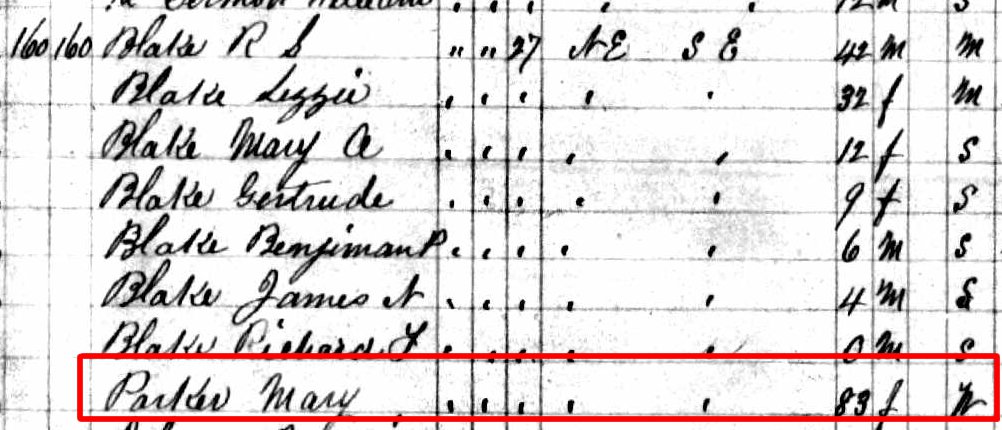 12 m S
160 160 Blake R S " " 27 NE S E 42 m m
Blake Lizzie , , , , , 32 f m
Blake Mary A , , , , , 12 f S
Blake Gertrude , , , , , 9 f S
Blake Benjiman P , , , , , 6 m S
Blake James N , , , , , 4 m S
Blake Richard F , , , , , 0 m S
Parker Mary , , , , , 83 f W